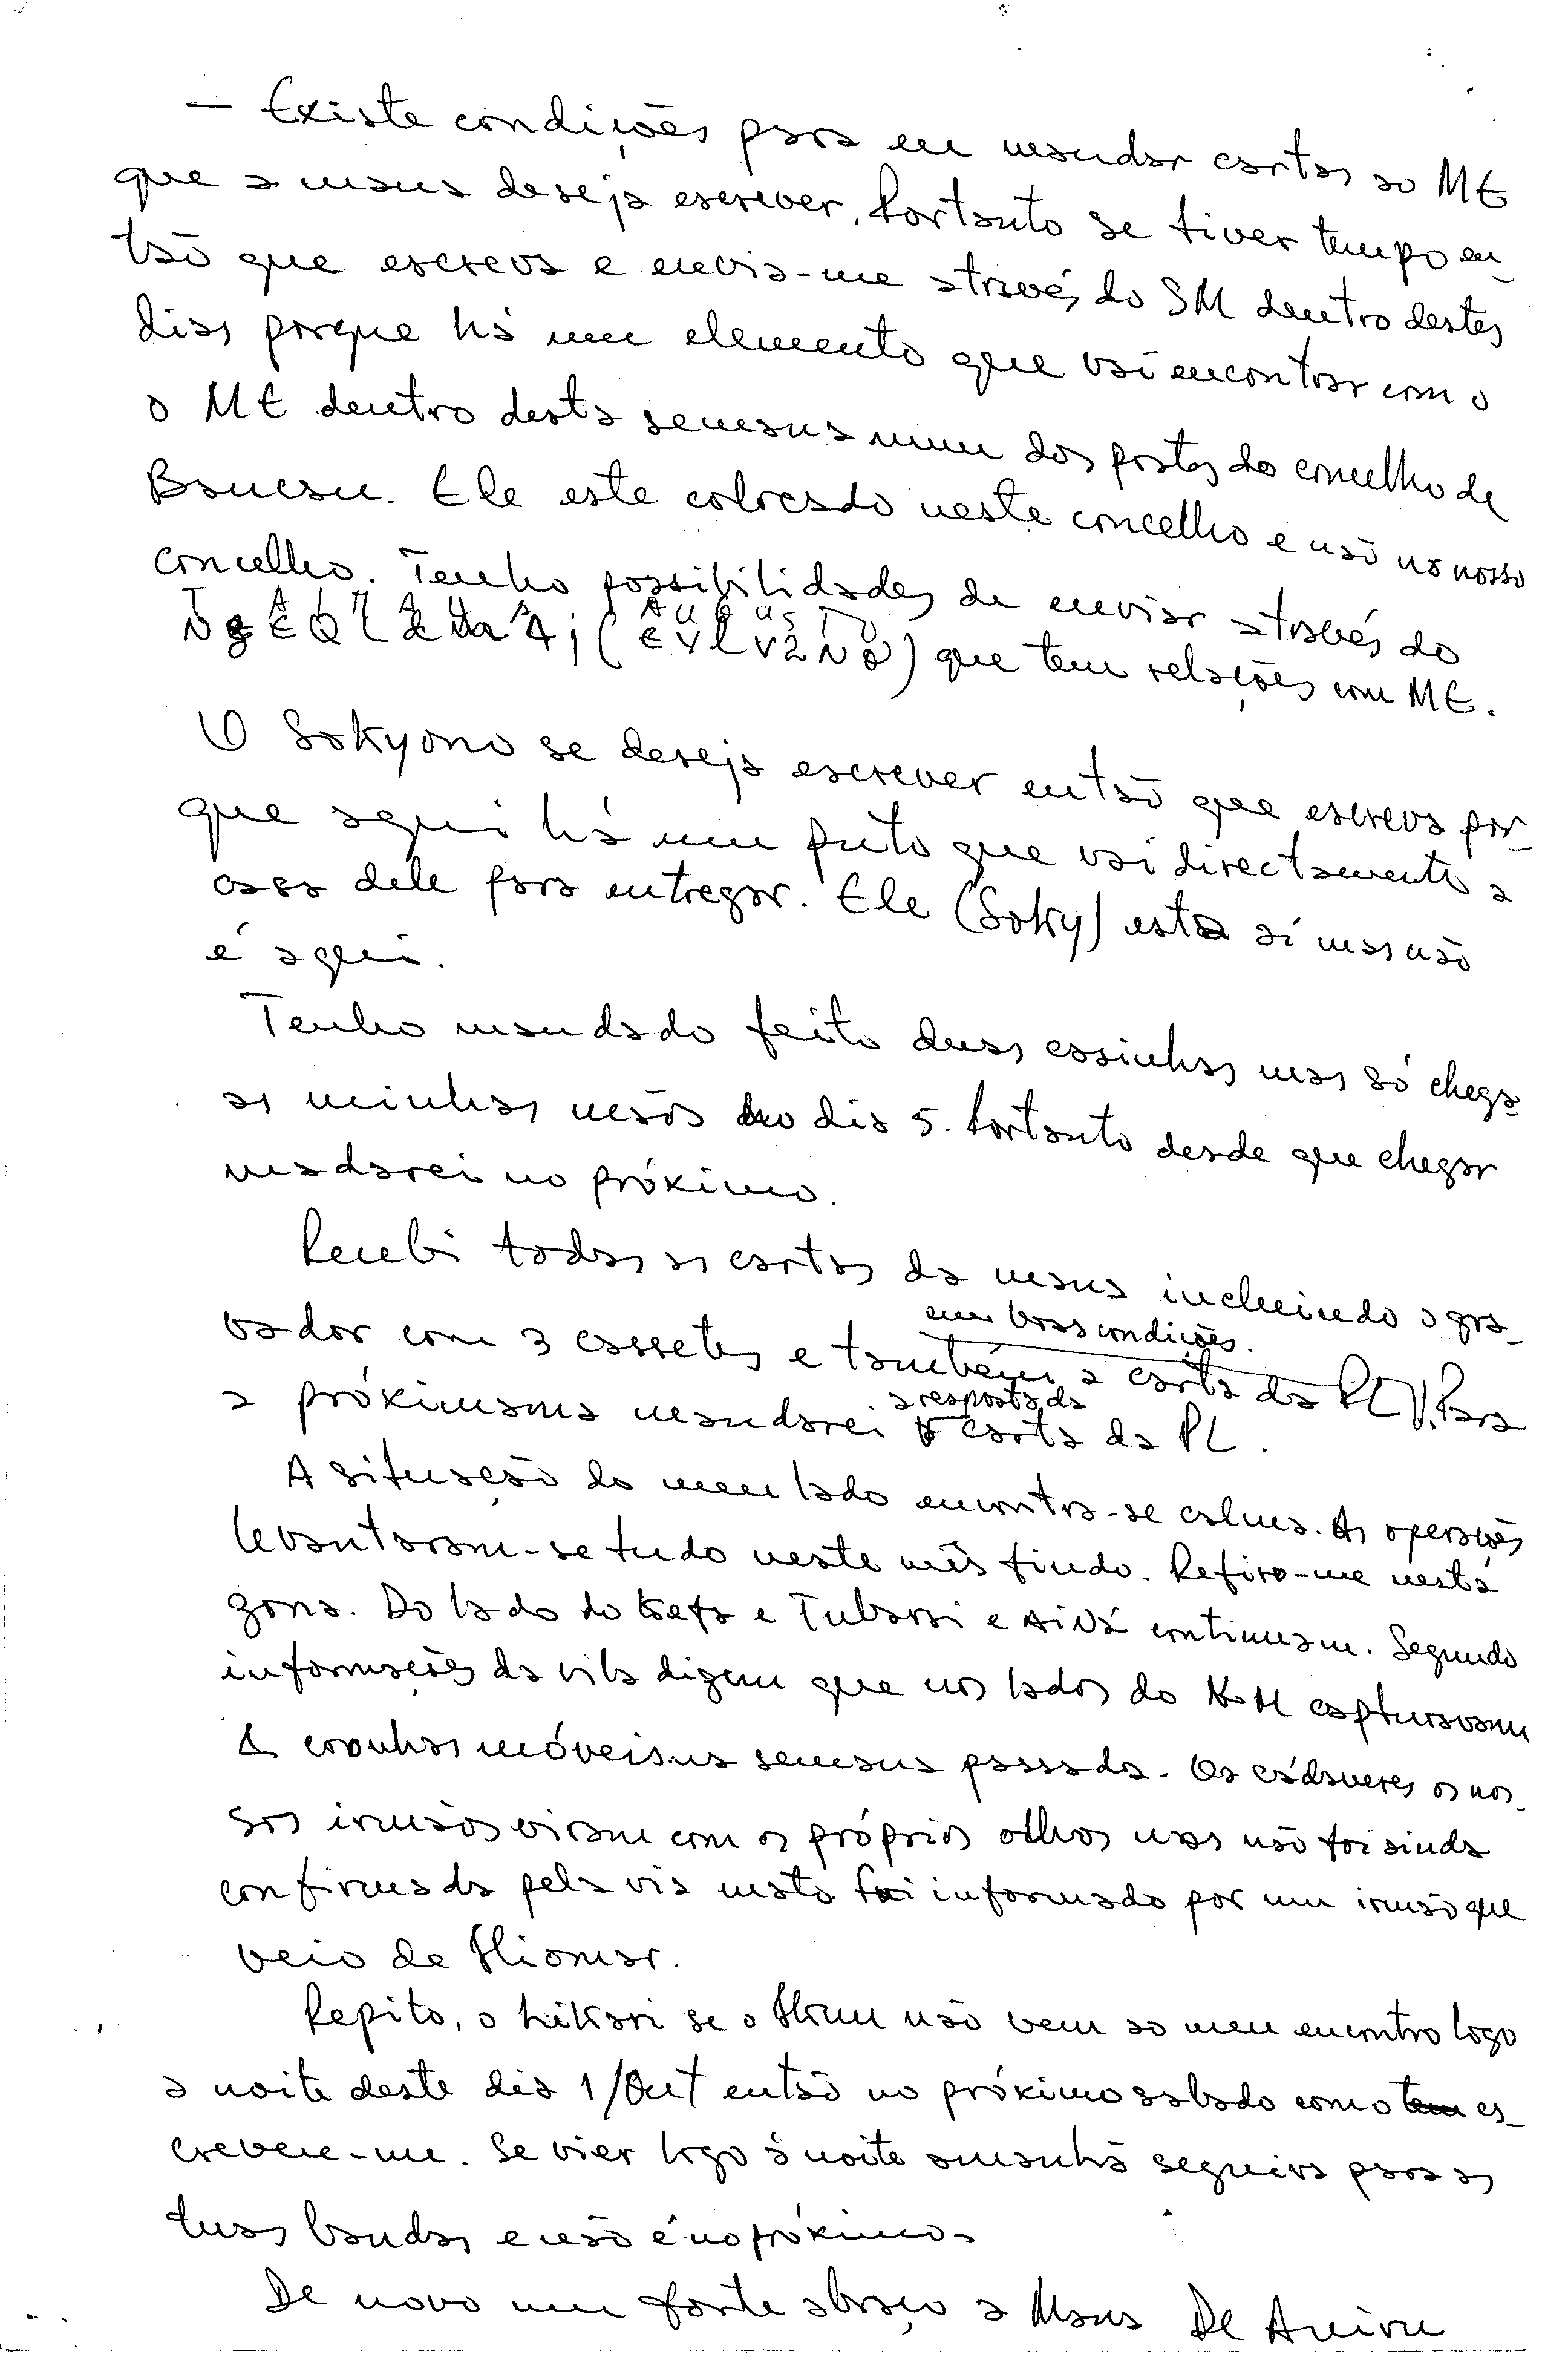 — Existe condições para eu mandar cartas ao ME
que a mana deseja escrever. Portanto se tiver tempo en-
tão que escreva e envia-me através do SM dentro destes
dias porque há um elemento que vai encontrar com o
o ME dentro desta semana num dos postos do concelho de
Baucau. Ele este colocado neste concelho e não no nosso
concelho. Tenho possibilidades de enviar através do
(AUGUSTO
EVLV2NO) que tem relações com ME.
O Sokyono se deseja escrever então que escreva por-
que aqui há um puto que vai directamente a
casa dele para entregar. Ele (Soky) esta aí mas não
é aqui.
Tenho mandado feito duas casinhas mas só chega
as minhas mãos no dia 5. Portanto desde que chegar
madarei no próximo.
Recebi todas as cartas da mana incluindo o gra-
em boas condições.
vador com 3 cassetes e também a carta da PL). Para
a próximama mandarei
a resposta da
carta da PL.
A situação do meu lado encontra-se calma. As operações
levantaram-se tudo neste mês findo. Refiro-me nesta
zona. Do lado do Kefa e Tubarai e AiNá continuam. Segundo
informações da vila dizem que nos lados do capturavam
coronhas móveis na semana passada. Os cádaveres os nos-
sos irmãos viram com os próprios olhos mas não foi ainda
confirmada pela via mata foi informado por um irmão que
veio de Hiomar.
Repito, o Likari se o não vem ao meu encontro logo
a noite deste dia 1/Out então no próximo sabado como tem es-
crevere-me. Se vier logo à noite amanhã seguira para as
tuas bandas e não é no próximo.
De novo um forte abraço a Mana De